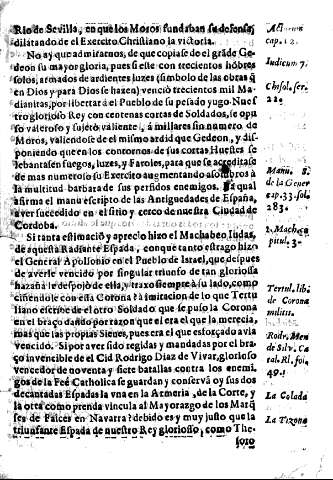 Rio de Sevilla, en que los Moros fundaban su defensa,
dilatando de el Exercito Christiano la victoria.
No ay que admirarnos, de que copiase de el gráde Ge-
deon su mayor gloria, pues si este con trecientos hóbres
solos, armados de ardientes luzes (simbolo de las obras q̃
en Dios y para Dios se hazen) venció trecientos mil Ma-
dianitas, por libertar á el Pueblo de su pesado yugo. Nues
tro glorioso Rey con centenas cortas de Soldados, se opu
so valeroso y sujetó valiente, á millares sin numero de
Moros, valiendose de el mismo ardid que Gedeon, y dis-
poniendo que en los contornos de sus cortas Huestes se
lebantasen fuegos, luzes, y Faroles, para que se acreditase
de mas numeroso su Exercito augmentando asombros á
la multitud barbara de sus perfidos enemigos.
afirma el manuescripto de las Antiguedades de España,
aver succedido en el sitio y cerco de nuestra Ciudad de
Cordoba.
Si tanta estimació y aprecio hizo el Machabeo Judas,
de aquesta Radiante Espada, con que tanto estrago hizo
el General Apolsonio en el Pueblo de Israel, que despues
de averle vencido por singular triunfo de tan gloriosa
hazaña le despojó de ella, y traxo siempre á su lado, como
ciñendole con ella Corona? á imitacion de lo que Tertu
liano escribe de el otro Soldado que se puso la Corona
en el braço dañdo por razon que el era el que la merecia,
mas que las propias Sienes, pues era el que esforçado avia
vencido. Si por aver sido regidas y mandadas por el bra-
ço invencible de el Cid Rodrigo Diaz de Vivar, glorioso
vencedor de noventa y siete batallas contra los enemi-
gos de la Feé Catholica se guardan y conservá oy sus dos
decantadas Espadas la vna en la Armeria, de la Corte, y
la otra como prenda vincula al Mayorazgo de los Marq̃
ses de Falces en Navarra? debido es y muy justo que la
triunfante Espada de nuestro Rey glorioso, como The-
soro
cap. 12.
Iudicum 7.
Chrisol. ser.
220.
Manu. S.
de la Gener
cap. 33. fol
283.
1. Machca
pitul. 3.
Tertul. lib.
de Corona
militit.
Rodr. Men
de Silv. Ca
tal. Rl. fol.
49.
La Colada
La Tizona